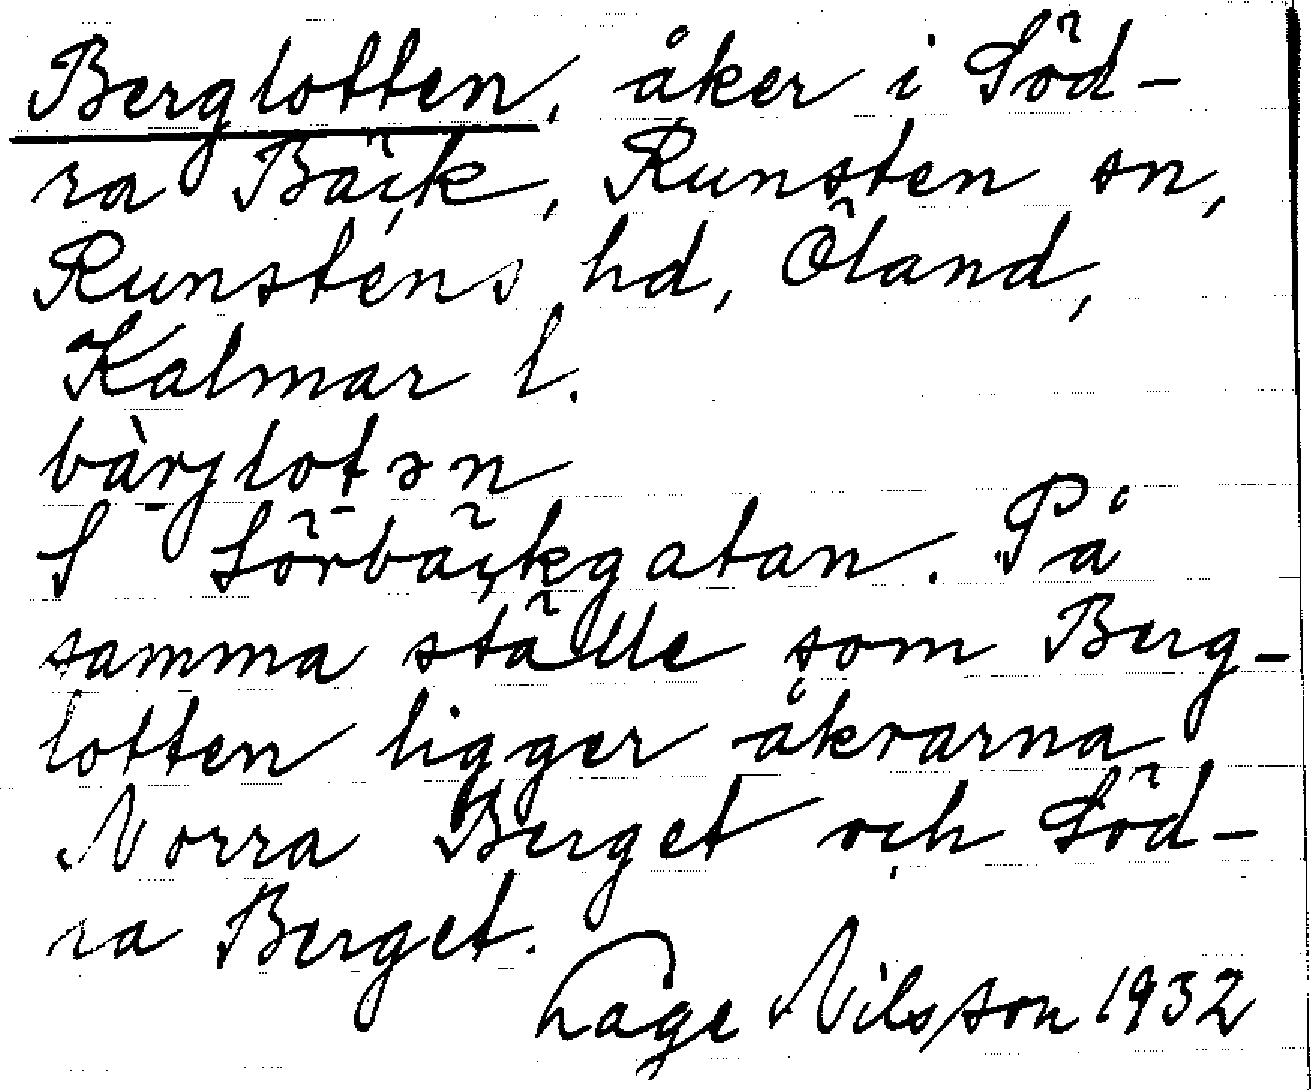 Berglotten, åker i Söd-
ra Bäck, Runsten sn,
Runstens hd, Öland,
Kalmar l.
bàrjlotən
S Sörbäckgatan. På
samma ställe som Berg-
lotten ligger åkrarna
Norra Berget och Söd-
ra Berget.
Lage Nilsson 1932